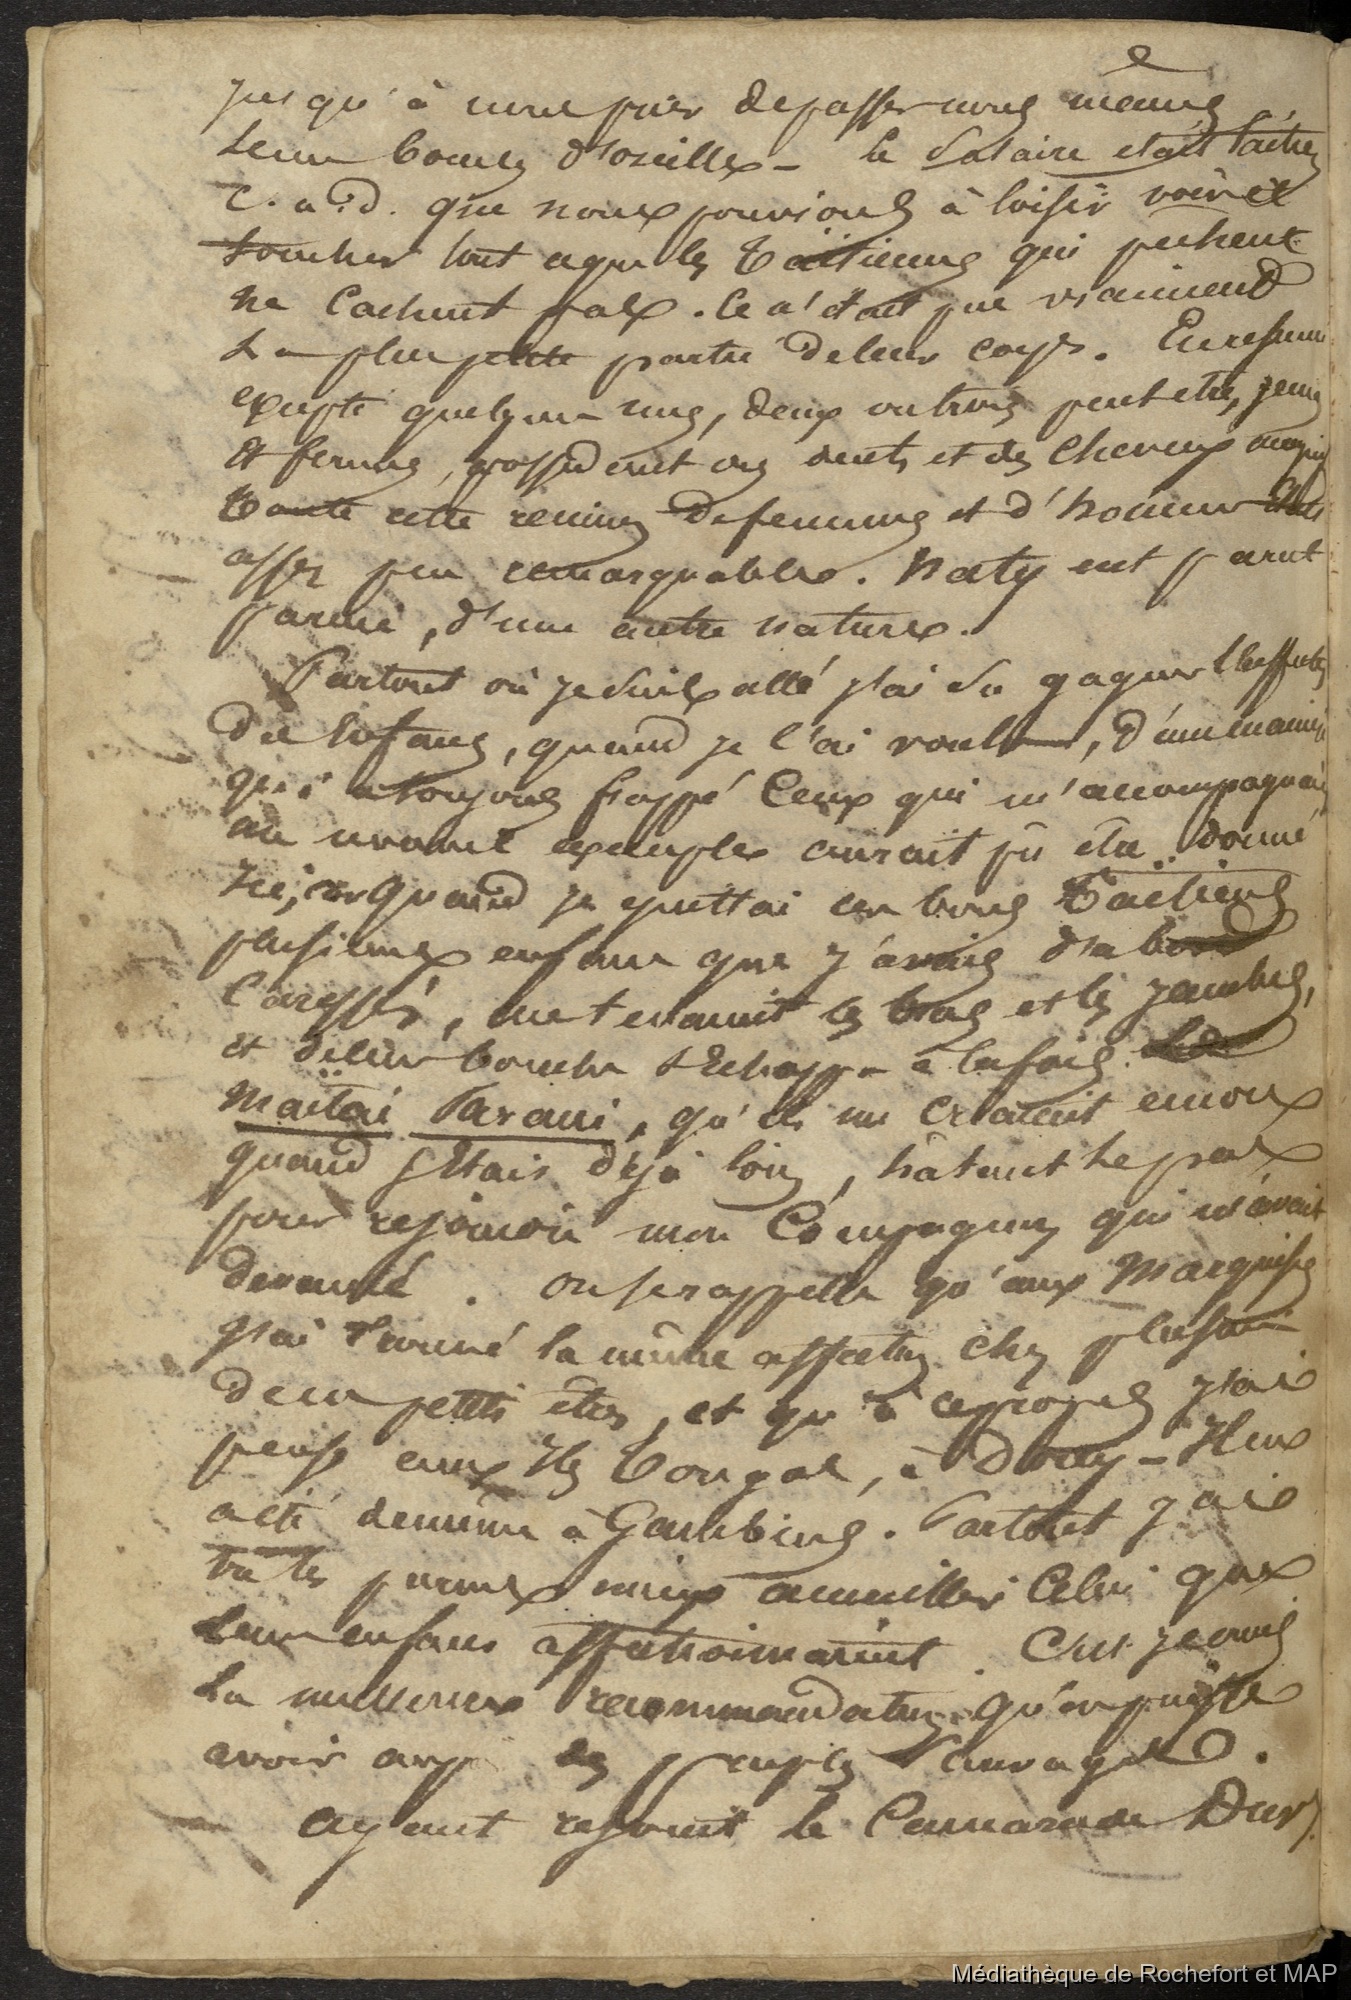 jusqu'à nous faire dépasser nous mêmes
leurs boucles d'oreilles - le salaire était
c. a. d. que nous pouvions à loisir voir et
toucher tout ce que les Taïtiennes qui pechent
ne cachent pas. Ce n'était pas vraiment
la plus petite partie de leur corps. En resumé
excepté quelques unes, deux ou trois peut etre, jeunes
et fermes, possederent des dents et des cheveux
toute cette reunion de femmes et d'hommes était
assez peu remarquables. Naty eut parut
parmi, d'une autre nature.
Partout où je suis allé j'ai su gagner l'affection
des enfans, quand je l'ai voulu, d'une manière
qui a toujours frappé ceux qui m'accompagnaient
un nouvel exemple aurait pû être donné
ici, car quand je quittai ces bons Taïtiens
plusieurs enfans que j'avais d'abord
caressés, me tenaient les bras et les jambes,
et de leur bouche s'échappa à la fois
Maïtaï Farani, qu'ils me criaient encore
quand j'étais déjà loin, hâtant le pas
pour rejoindre mon Compagnon qui m'avait
devancé. On se rappelle qu'aux Marquises
j'ai trouvé la même affection chez plusieurs
de ces petits êtres, et qu'à ce propos j'ai
pensé aux Iles Tongas, à Dorey - Il en
a été de même à Gambiers. Partout j'ai
vu les parens mieux accueillir celui que
leurs enfans affectionnaient. C'est je crois
la meilleure recommandation qu'on puisse
avoir des peuples sauvages.
Ayant rejoint le Camarade
Médiathèque de Rochefort et MAP